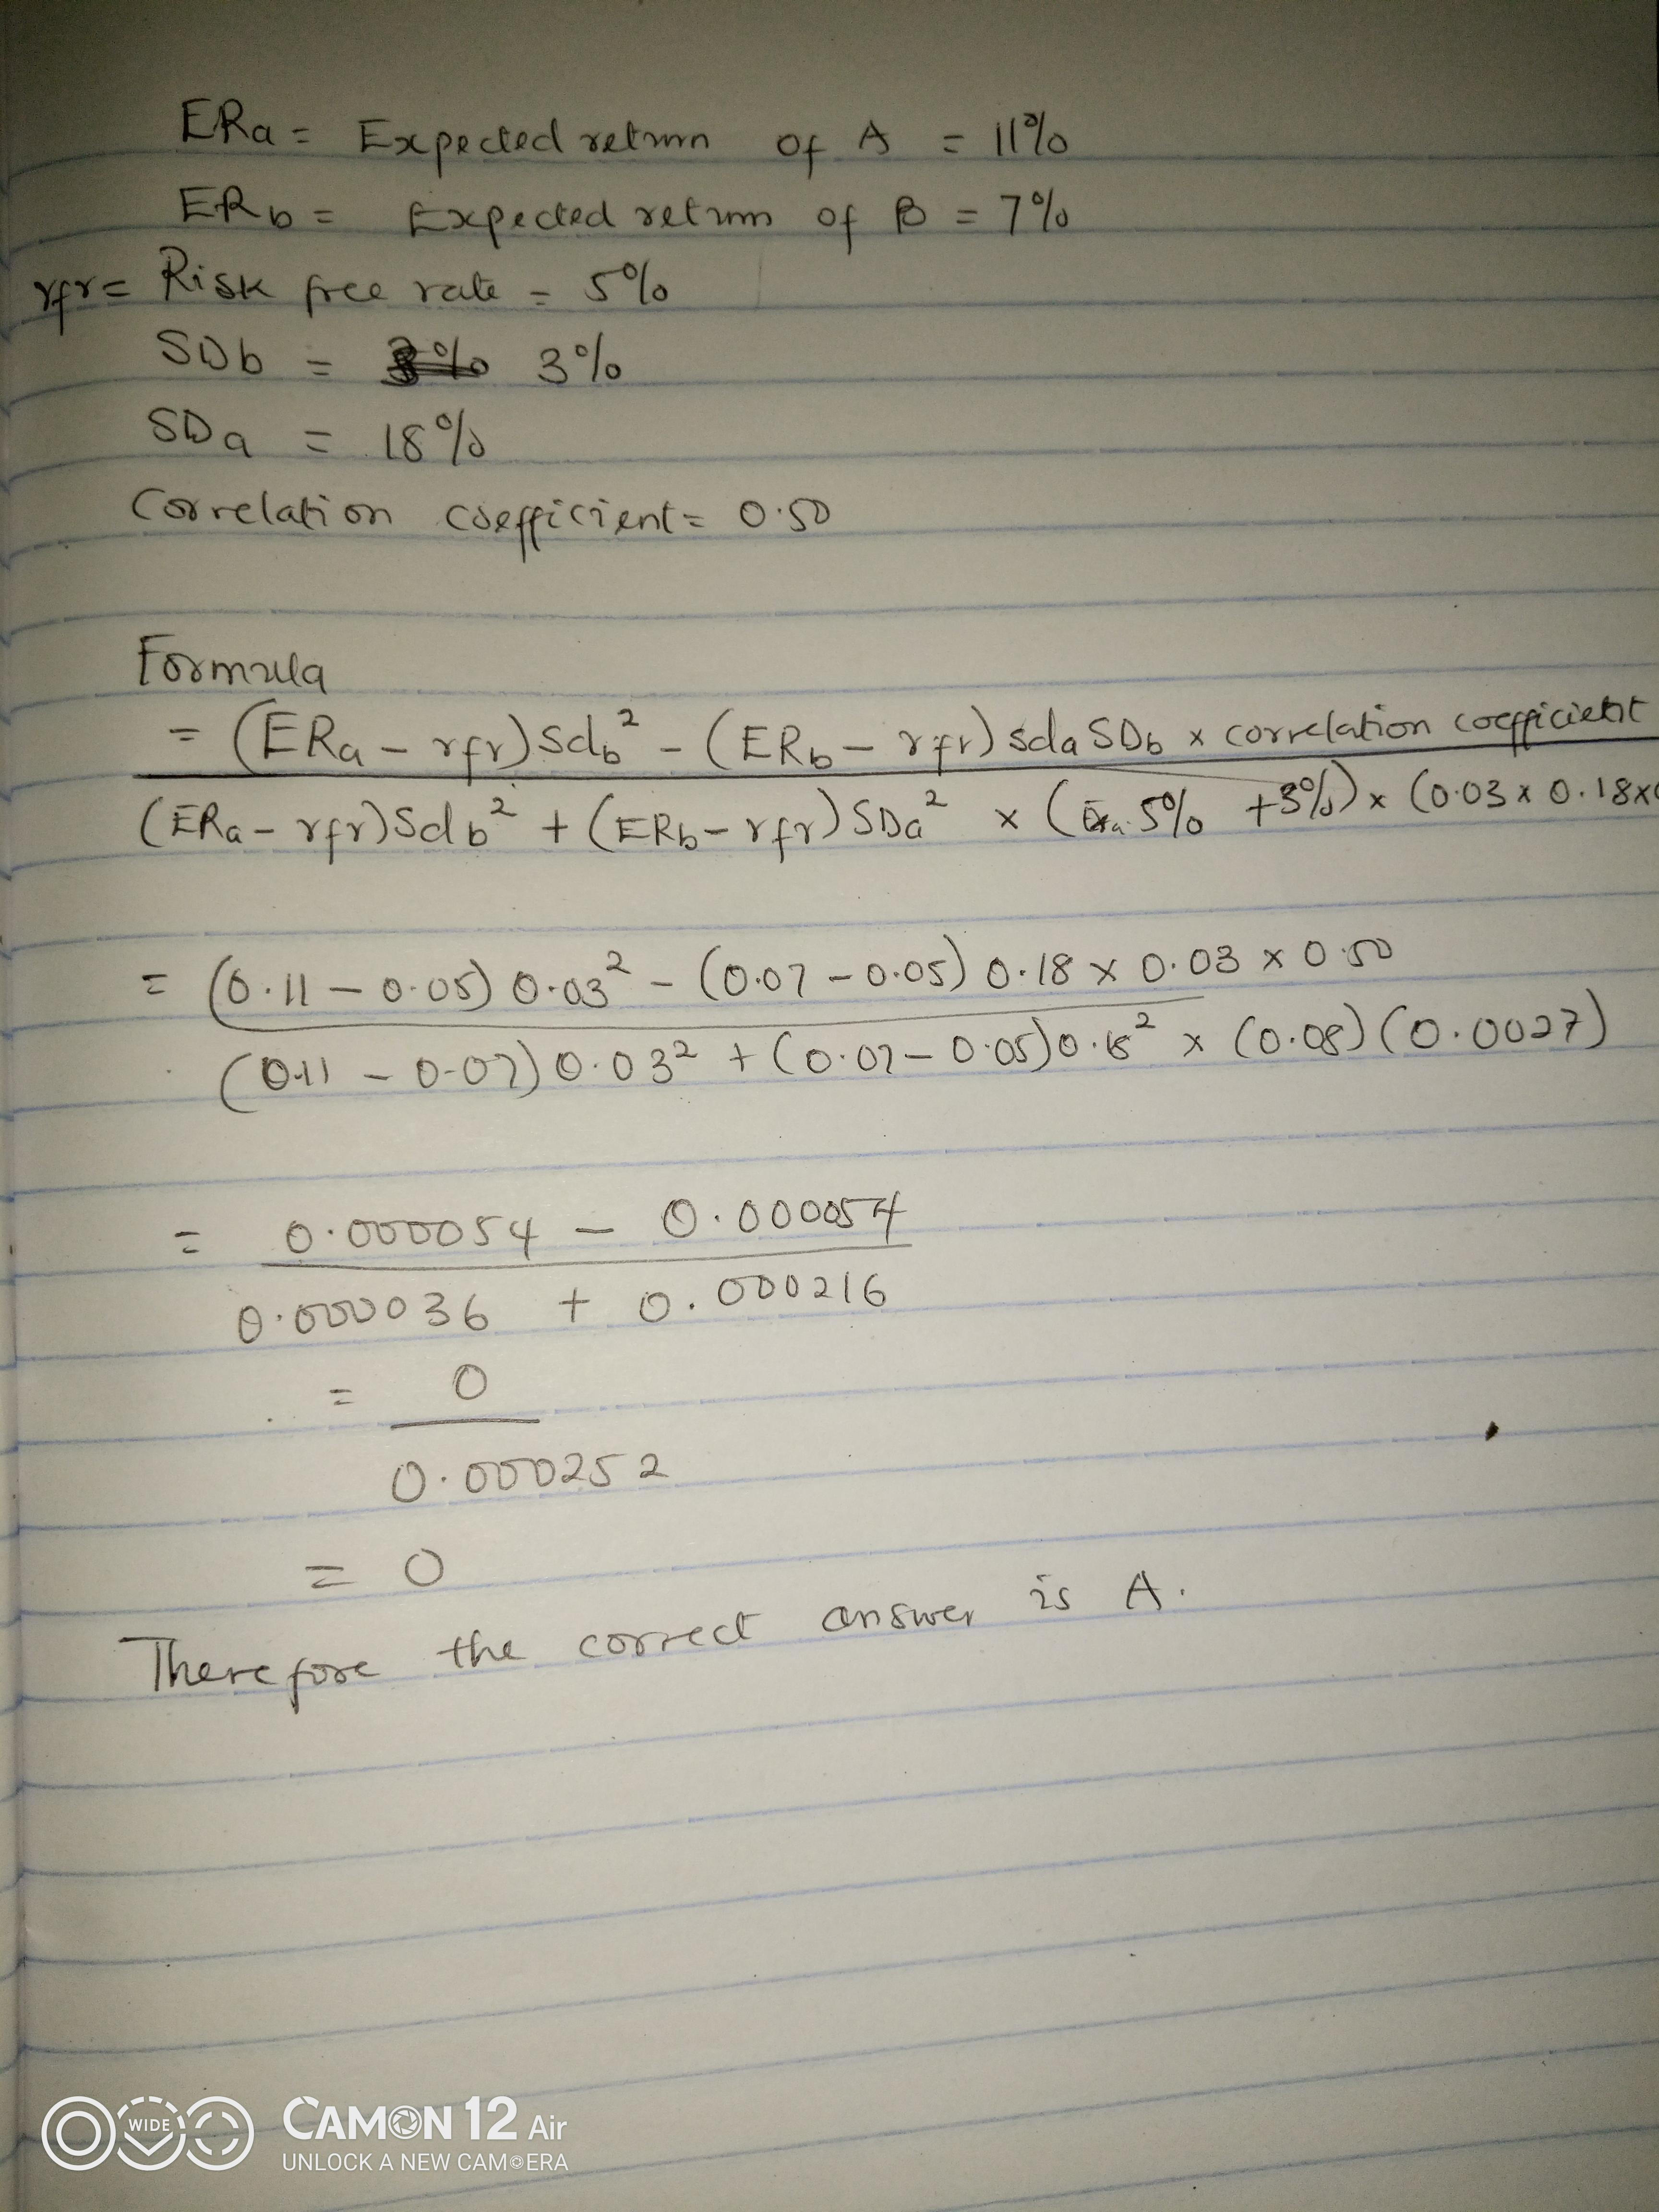 ERa = Expected return of A = 11%
ERb = Expected return of B = 7%
rfr = Risk free rate = 5%
SDb = 3% 3%
SDa = 18%
Correlation coefficient = 0.50
Formula
= (ERa - rfr) Sdb² - (ERb - rfr) sda SDb x correlation coefficient
(ERa - rfr) Sdb² + (ERb - rfr) SDa² x ( 5% +3%) x (0.03 x 0.18x
= (0.11 - 0.05) 0.03² - (0.07 - 0.05) 0.18 x 0.03 x 0.50
(0.11 - 0.07) 0.03² + (0.07 - 0.05) 0.18² x (0.08) (0.0027)
= 0.000054 - 0.000054
0.000036 + 0.000216
= 0
0.000252
= 0
Therefore the correct answer is A.
WIDE CAMON 12 Air
UNLOCK A NEW CAMERA